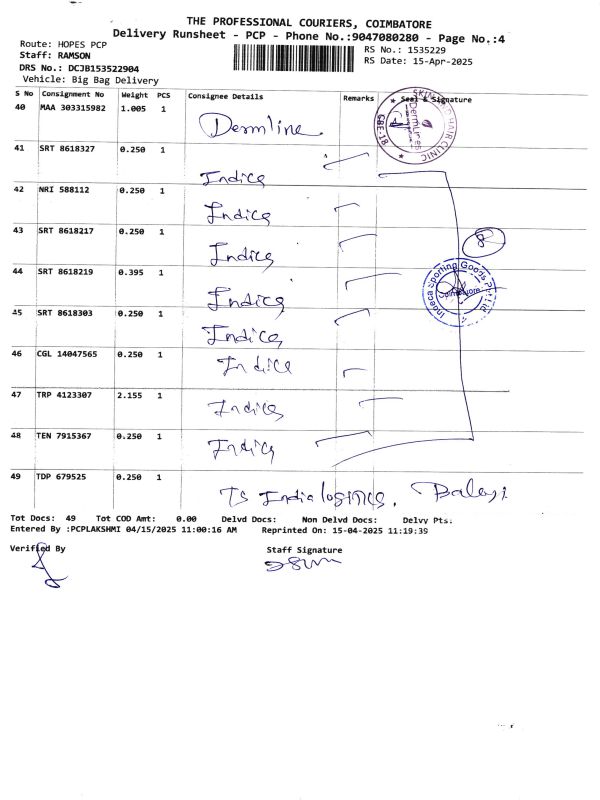 THE PROFESSIONAL COURIERS, COIMBATORE
Delivery Runsheet - PCP - Phone No.:9047080280 - Page No.:4
Route: HOPES PCP
Staff: RAMSON
DRS No.: DCJB153522904
Vehicle: Big Bag Delivery
RS No.: 1535229
RS Date: 15-Apr-2025
S No Consignment No Weight PCS Consignee Details Remarks Seal & Signature
40 MAA 303315982 1.005 1 Dermline
SKIN HAIR CLINIC CBE-18
41 SRT 8618327 0.250 1 Indica
42 NRI 588112 0.250 1 Indica
43 SRT 8618217 0.250 1 Indica
8
44 SRT 8618219 0.395 1 Indica
Sporting Goods Pvt Ltd
45 SRT 8618303 0.250 1 Indica
46 CGL 14047565 0.250 1 Indica
47 TRP 4123307 2.155 1 Indica
48 TEN 7915367 0.250 1 Indica
49 TDP 679525 0.250 1 Ts India logistics.
Tot Docs: 49 Tot COD Amt: 0.00 Delvd Docs: Non Delvd Docs: Delvy Pts:
Entered By :PCPLAKSHMI 04/15/2025 11:00:16 AM Reprinted On: 15-04-2025 11:19:39
Verified By Staff Signature